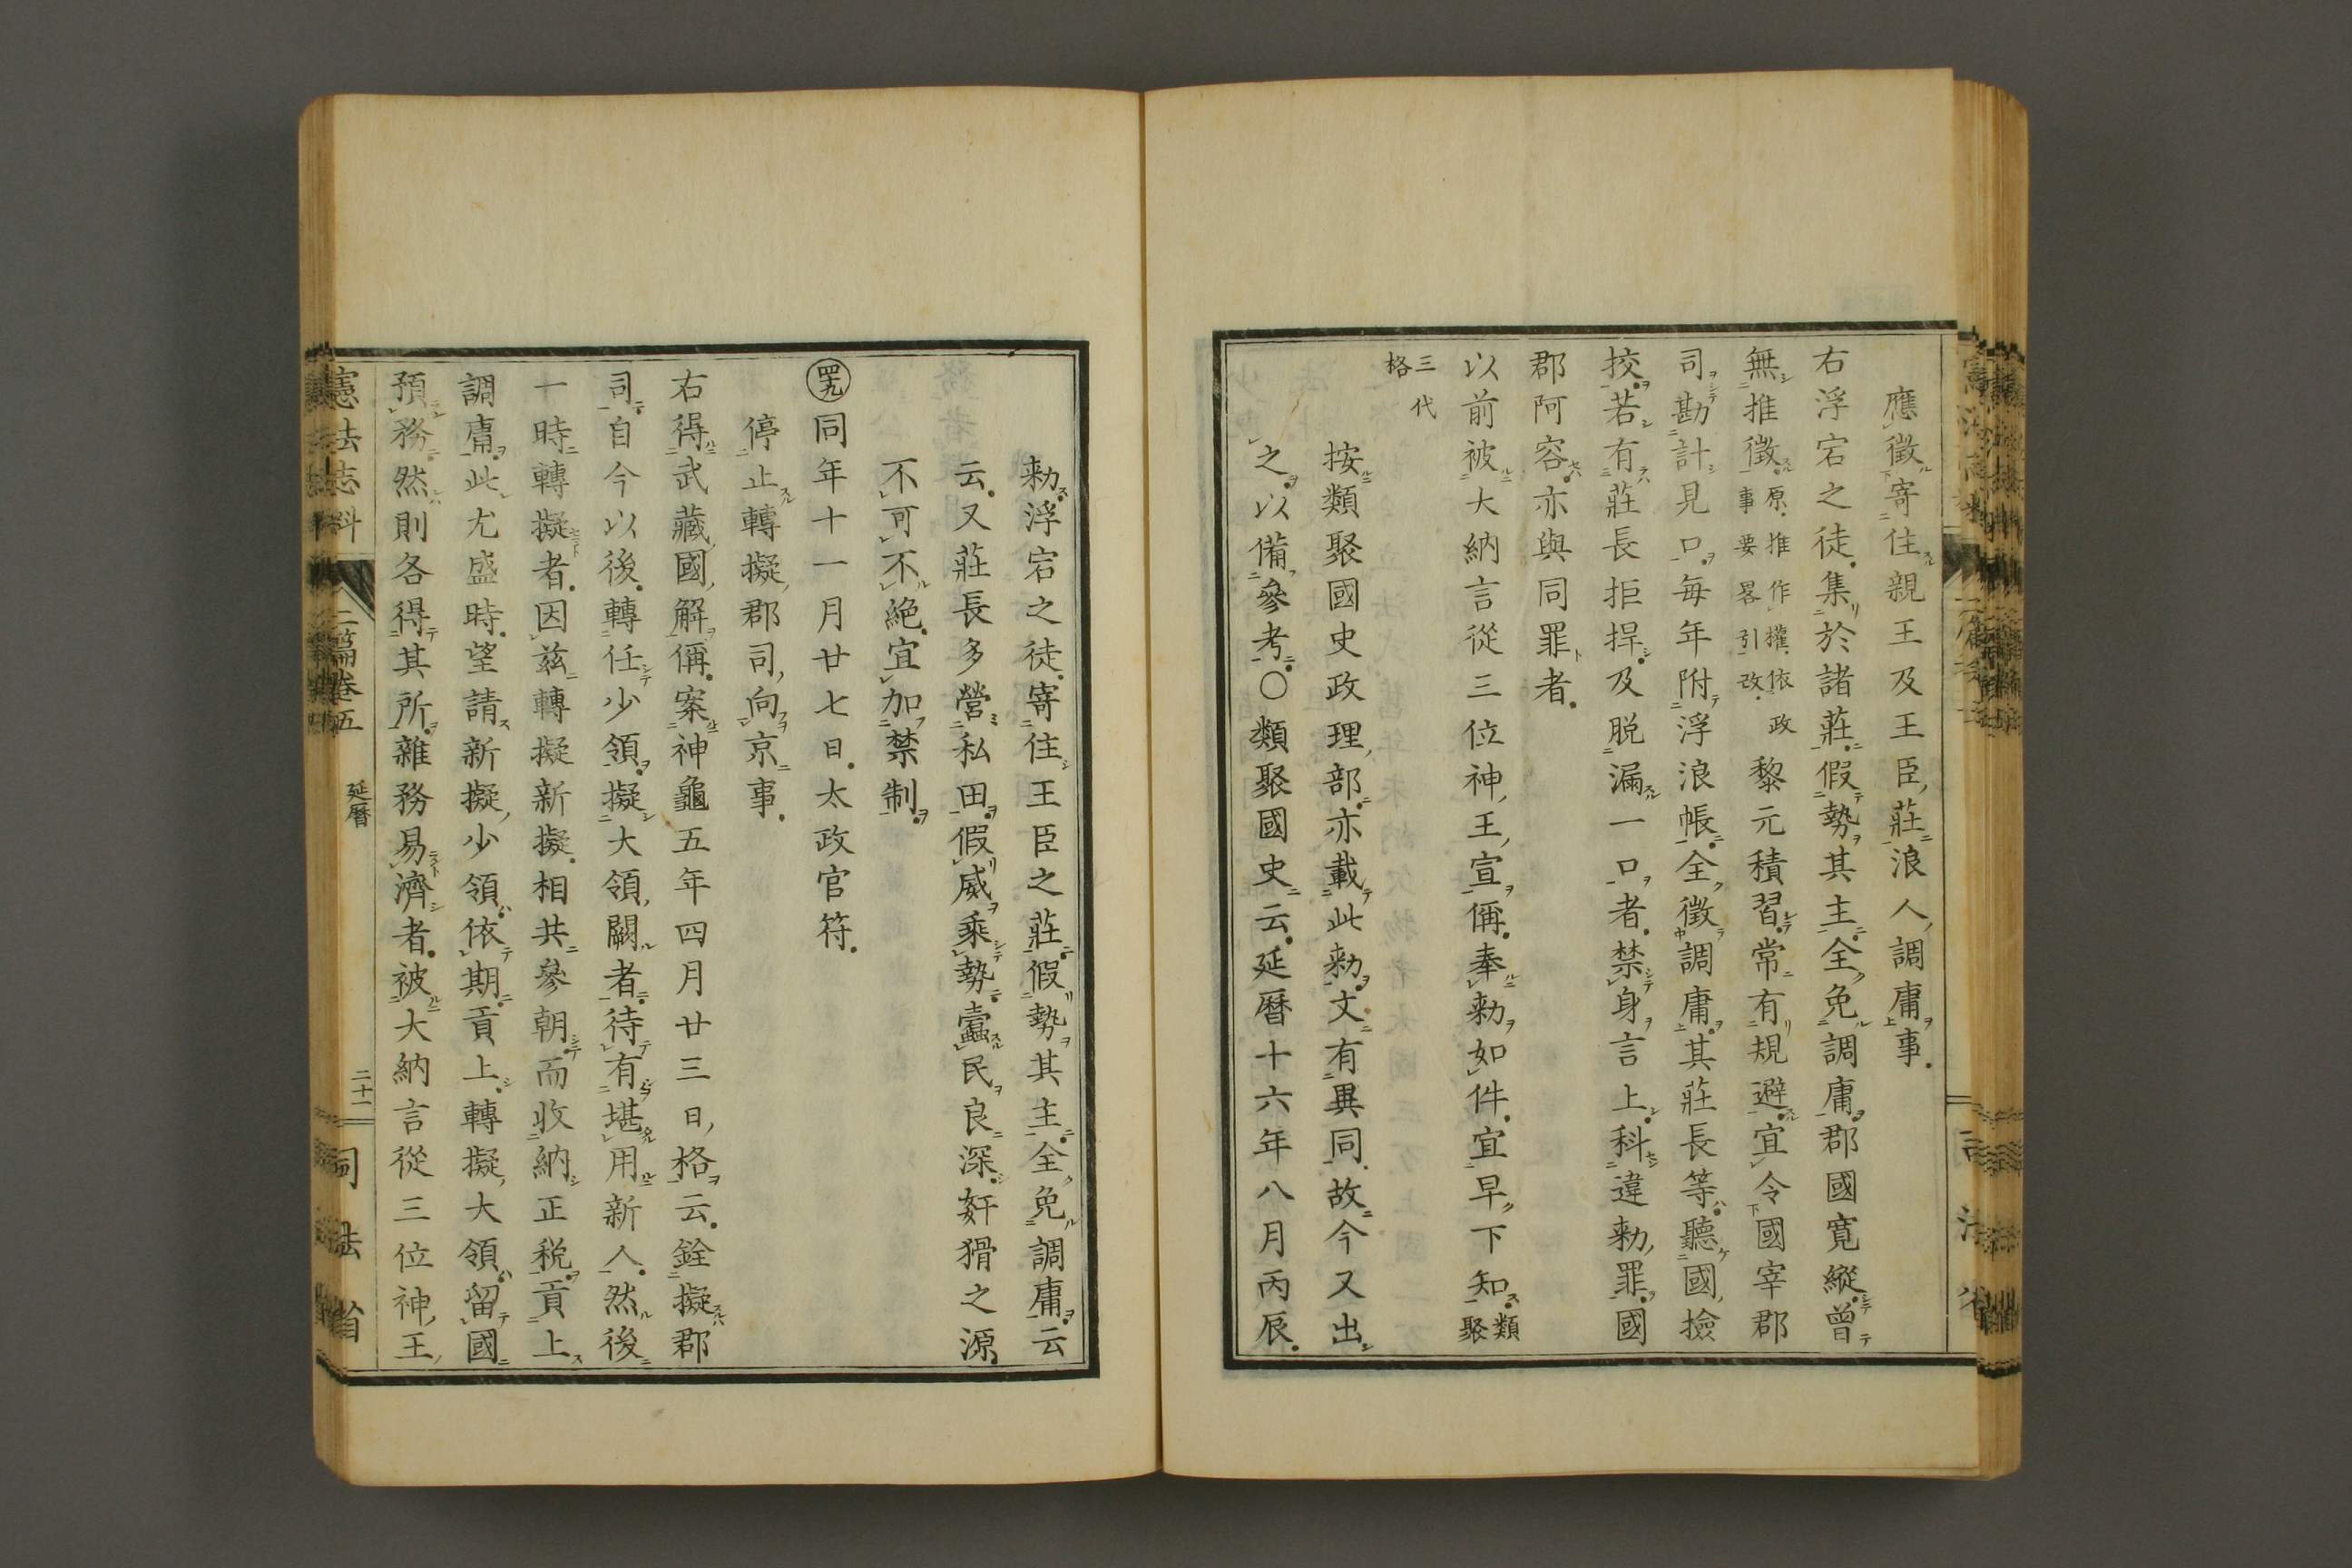 應徵寄住親王及王臣莊浪人調庸事
右浮宕之徒集於諸莊假勢其主全免調庸郡國寛縱曾
無推徵原推作擁依政事要畧引改黎元積習常有規避宜令國宰郡
司勘計見口每年附浮浪帳全徵調庸其莊長等聽國撿
挍若有莊長拒捍及脱漏一口者禁身言上科違勅罪國
郡阿容亦與同罪者
以前被大納言從三位神王宣偁奉勅如件宜早下知類聚
三代格
按類聚國史政理部亦載此勅文有異同故今又出
之以備參考○類聚國史云延曆十六年八月丙辰
勅浮宕之徒寄住王臣之莊假勢其主全免調庸云
云又莊長多營私田假威乘勢蠹民良深姧猾之源
不可不絶宜加禁制
四九同年十一月廿七日太政官符
停止轉擬郡司向京事
右得武藏國解偁案神龜五年四月廿三日格云銓擬郡
司自今以後轉任少領擬大領闕者待有堪用新人然後
一時轉擬者因玆轉擬新擬相共參朝而收納正税貢上
調庸此尤盛時望請新擬少領依期貢上轉擬大領留國
預務然則各得其所雜務易濟者被大納言從三位神王
憲法志料 二篇卷五 延曆 二十一 司法省